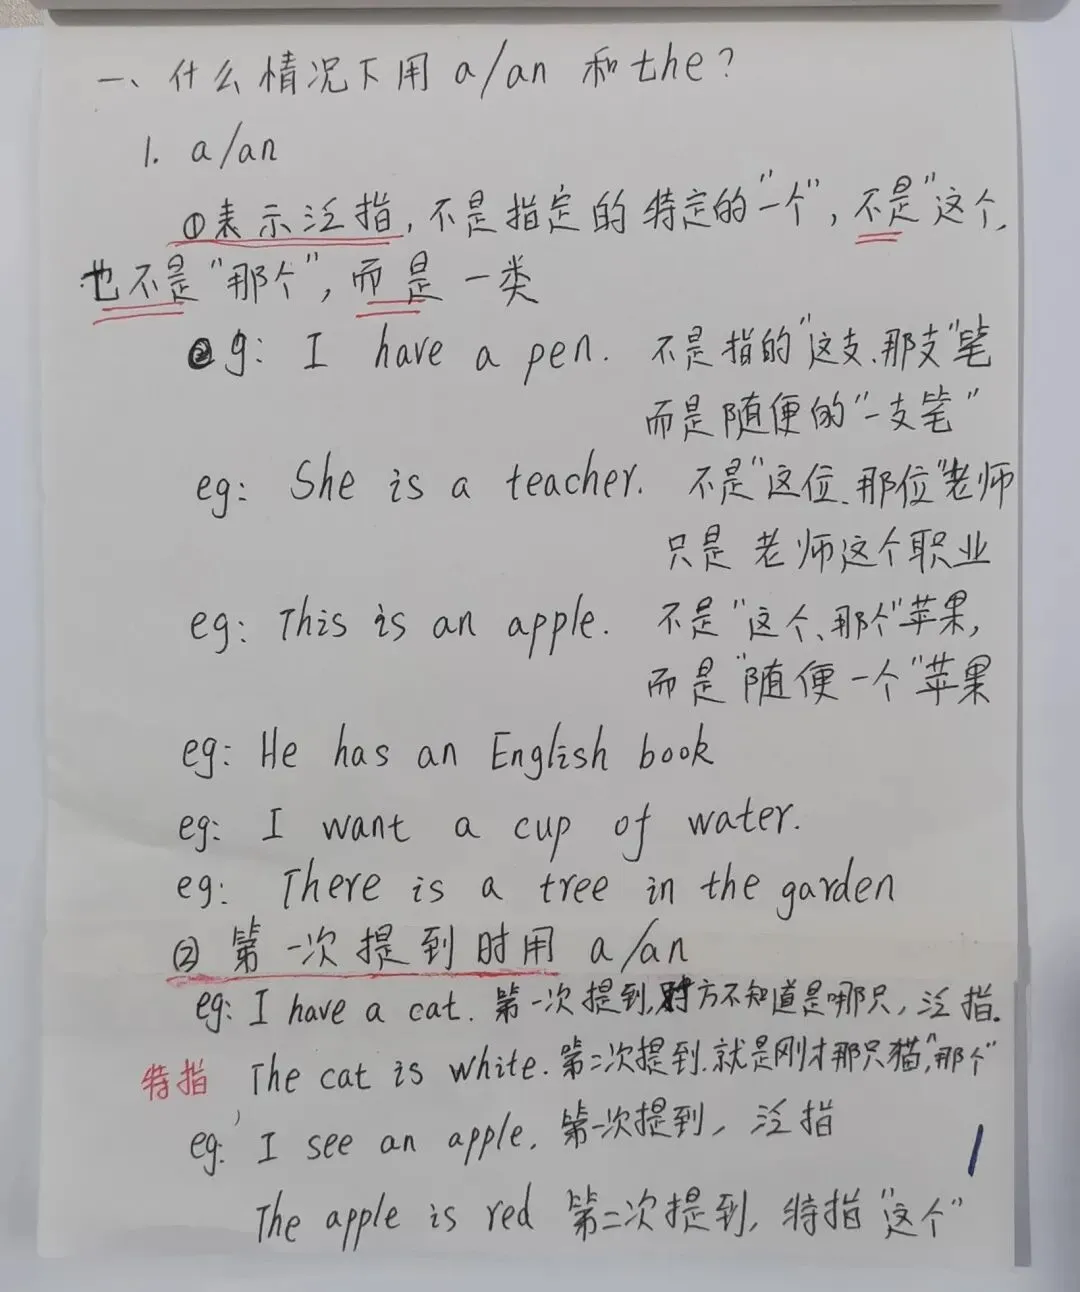 一、什么情况下用 a/an 和 the?
1. a/an
①表示泛指,不是指定的特定的"一个",不是"这个,
也不是"那个",而是一类
eg: I have a pen. 不是指的"这支、那支"笔
而是随便的"一支笔"
eg: She is a teacher. 不是"这位、那位"老师
只是 老师这个职业
eg: This is an apple. 不是"这个、那个"苹果,
而是"随便一个"苹果
eg: He has an English book
eg: I want a cup of water.
eg: There is a tree in the garden
② 第一次提到时用 a/an
eg: I have a cat. 第一次提到,对方不知道是哪只,泛指.
特指 The cat is white. 第二次提到.就是刚才那只猫,"那个"
eg: I see an apple. 第一次提到,泛指
The apple is red 第二次提到,特指"这个"
1